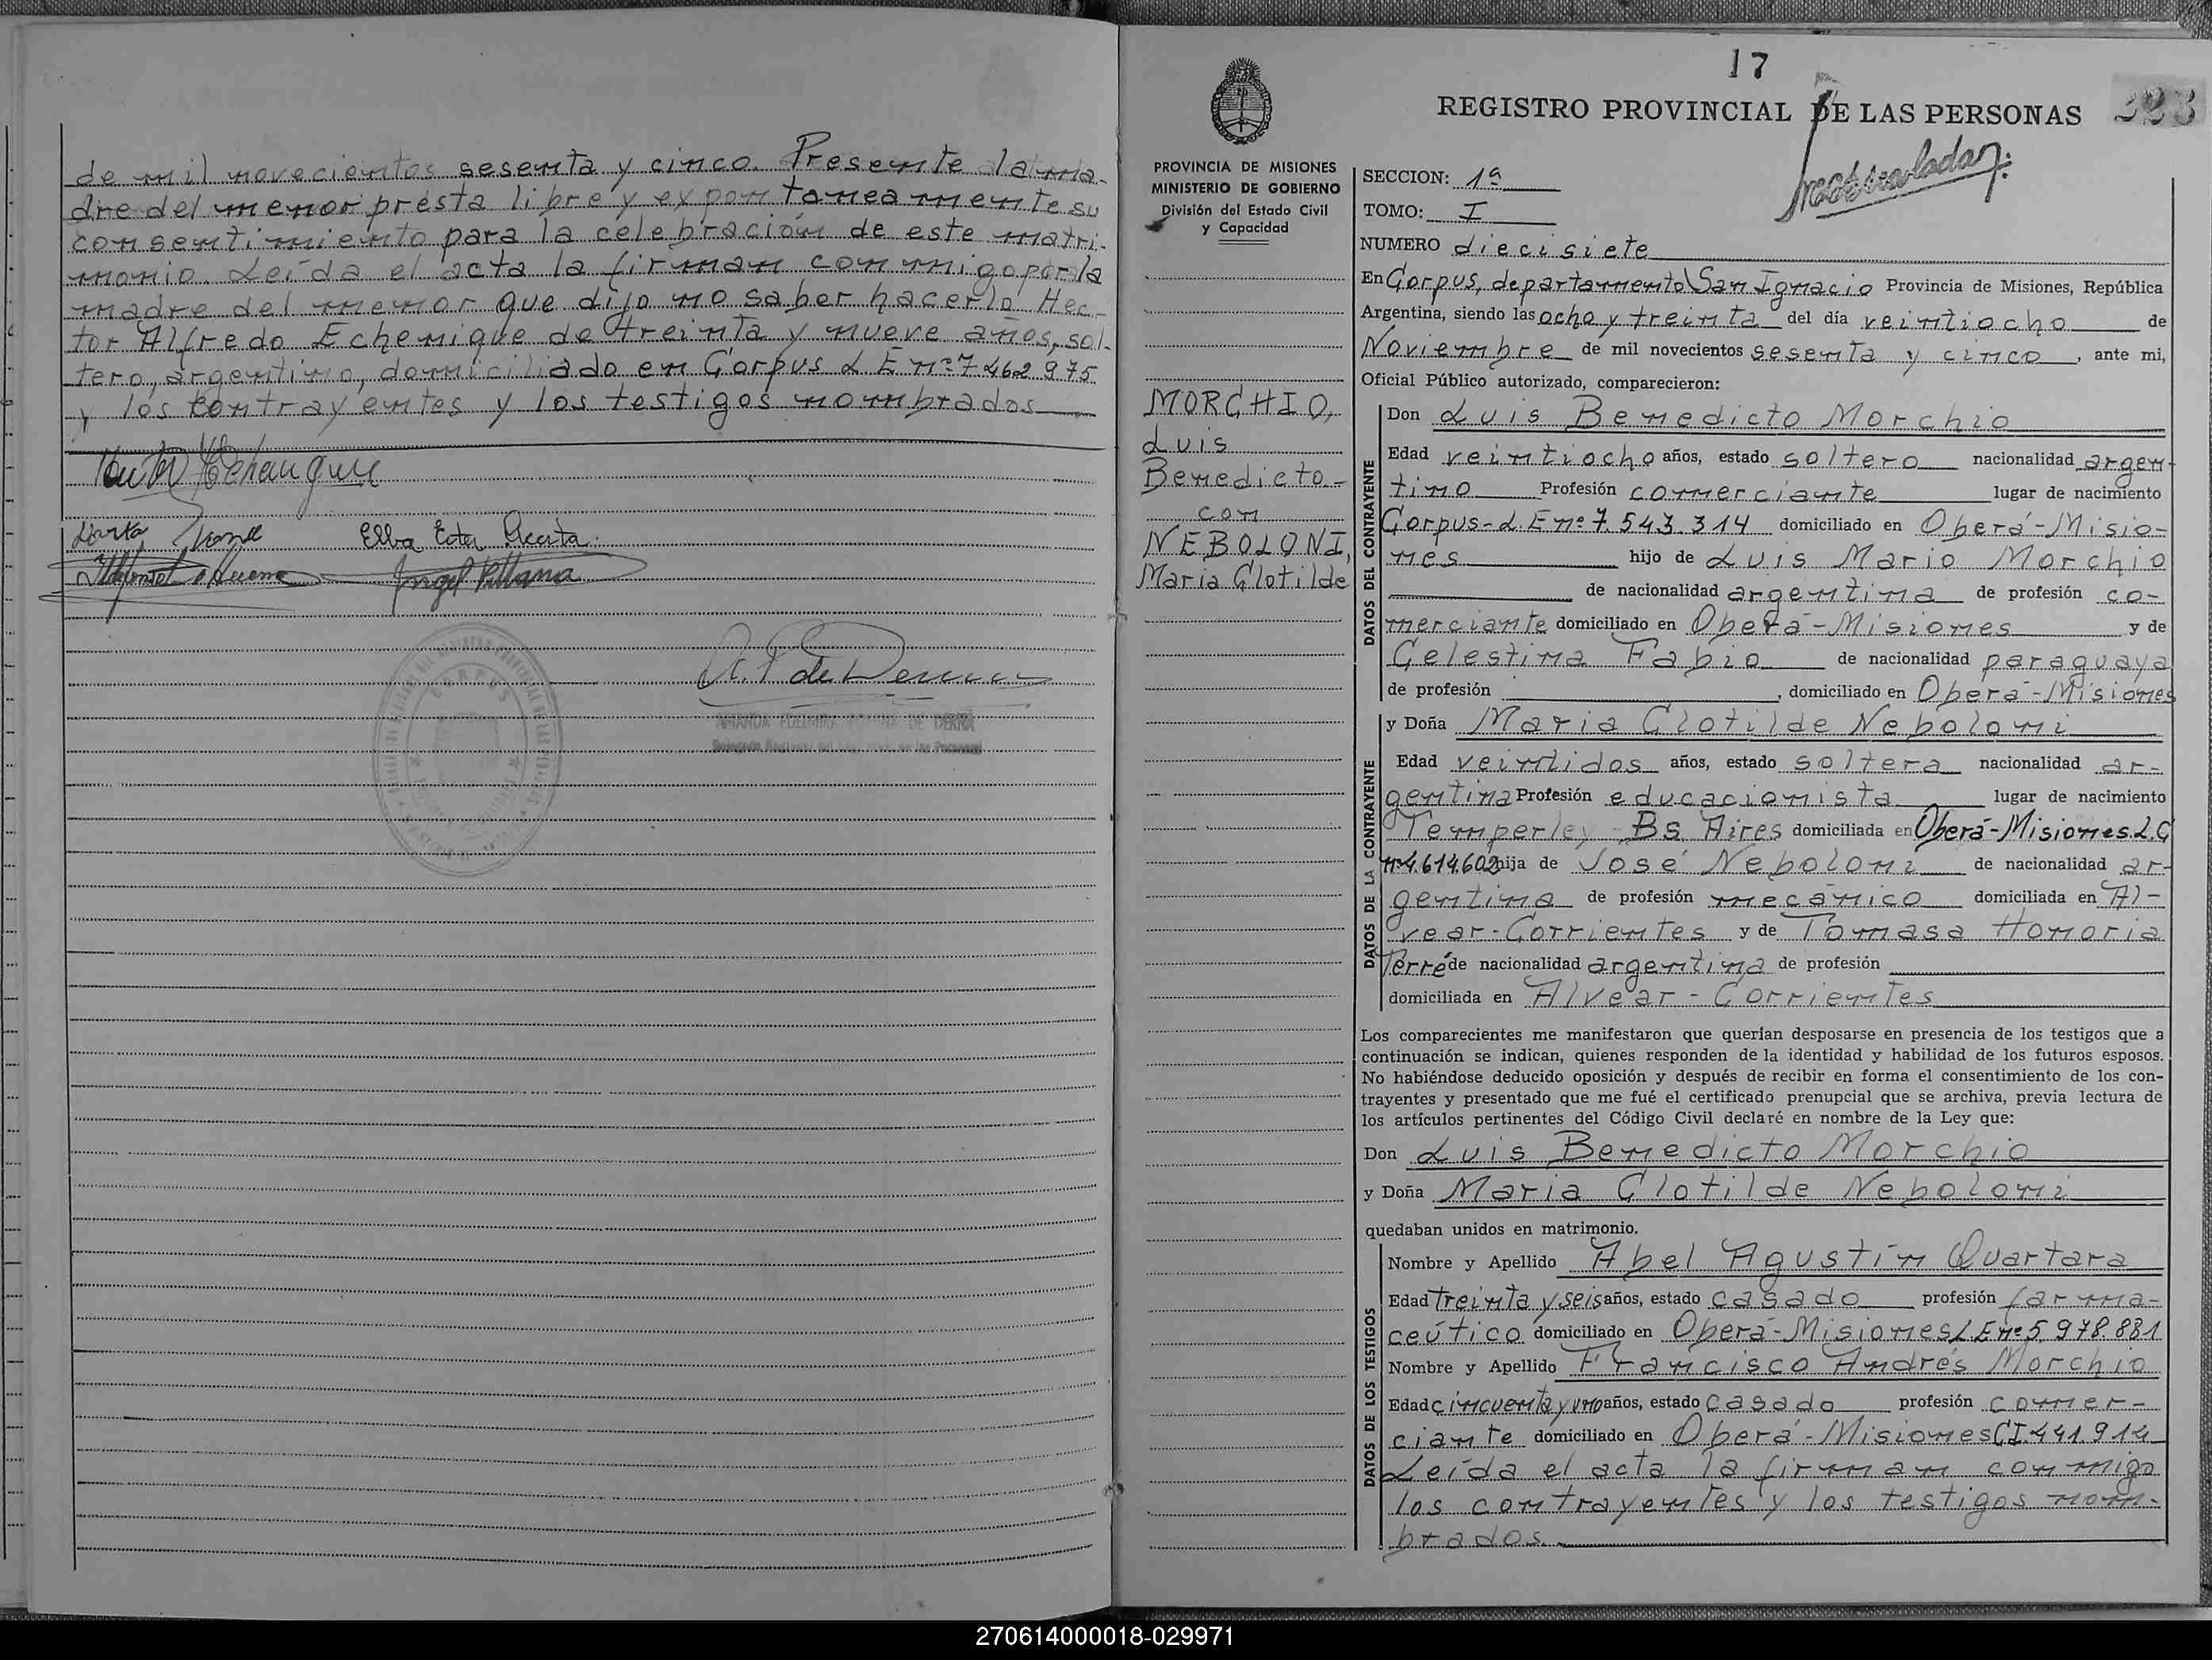 de mil novecientos sesenta y cinco. Presente la ma-
dre del menor presta libre y expontanea mente su
consentimiento para la celebración de este matri-
monio. Leída el acta la firman conmigo por la
madre del menor que dijo no saber hacerlo Hec-
tor Alfredo Echenique de treinta y nueve años, sol-
tero, argentino, domiciliado en Corpus L E nº 7462975
y los contrayentes y los testigos nombrados
Elba Ester Acosta.
CORPUS
17
REGISTRO PROVINCIAL DE LAS PERSONAS 323
PROVINCIA DE MISIONES
MINISTERIO DE GOBIERNO
División del Estado Civil
y Capacidad
MORCHIO,
Luis
Benedicto-
con
NEBOLONI,
Maria Clotilde
SECCION: 1ª
TOMO: I
NUMERO diecisiete
En Corpus, departamento San Ignacio Provincia de Misiones, República
Argentina, siendo las ocho y treinta del día veintiocho de
Noviembre de mil novecientos sesenta y cinco, ante mi,
Oficial Público autorizado, comparecieron:
DATOS DEL CONTRAYENTE
Don Luis Benedicto Morchio
Edad veintiocho años, estado soltero nacionalidad argen-
tino Profesión comerciante lugar de nacimiento
Corpus-L.E nº 7.543.314 domiciliado en Oberá-Misio-
nes hijo de Luis Mario Morchio
de nacionalidad argentina de profesión co-
merciante domiciliado en Oberá-Misiones y de
Celestina Fabio de nacionalidad paraguaya
de profesión , domiciliado en Oberá-Misiones
DATOS DE LA CONTRAYENTE
y Doña Maria Clotilde Neboloni
Edad veintidos años, estado soltera nacionalidad ar-
gentina Profesión educacionista lugar de nacimiento
Temperley - Bs Aires domiciliada en Oberá-Misiones L.C
nº4.614.602 hija de José Neboloni de nacionalidad ar-
gentina de profesión mecánico domiciliada en Al-
vear-Corrientes y de Tomasa Honoria
Ferré de nacionalidad argentina de profesión
domiciliada en Alvear - Corrientes
Los comparecientes me manifestaron que querían desposarse en presencia de los testigos que a
continuación se indican, quienes responden de la identidad y habilidad de los futuros esposos.
No habiéndose deducido oposición y después de recibir en forma el consentimiento de los con-
trayentes y presentado que me fué el certificado prenupcial que se archiva, previa lectura de
los artículos pertinentes del Código Civil declaré en nombre de la Ley que:
Don Luis Benedicto Morchio
y Doña Maria Clotilde Neboloni
quedaban unidos en matrimonio.
DATOS DE LOS TESTIGOS
Nombre y Apellido Abel Agustín Quartara
Edad treinta y seis años, estado casado profesión farma-
ceútico domiciliado en Oberá-Misiones L.E nº 5.978.881
Nombre y Apellido Francisco Andrés Morchio
Edad cincuenta y uno años, estado casado profesión comer-
ciante domiciliado en Oberá-Misiones CI.441.914
Leída el acta la firman conmigo
los contrayentes y los testigos nom-
brados.
270614000018-029971